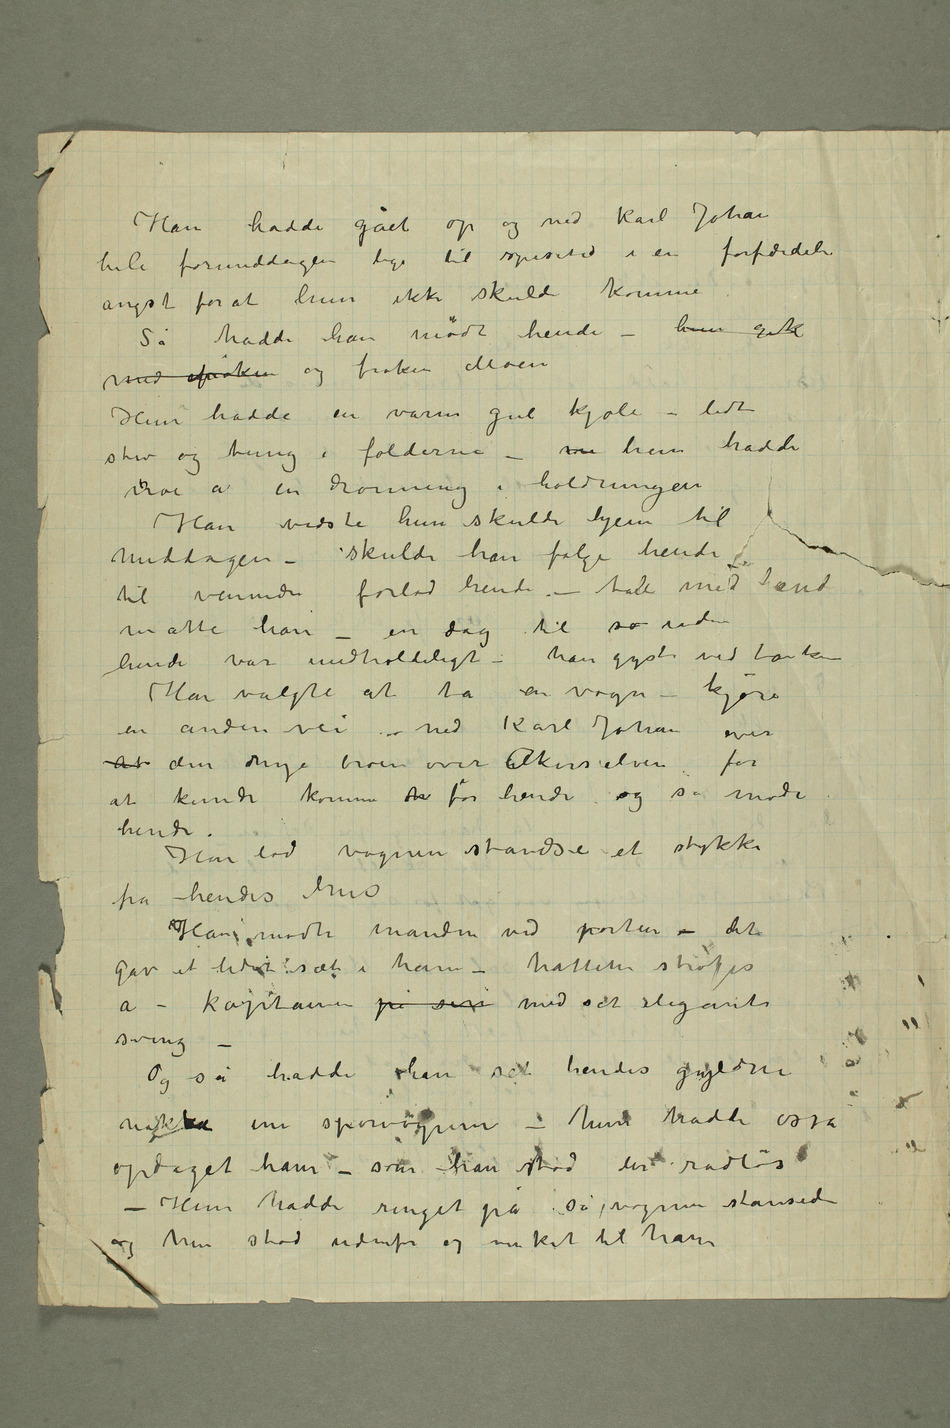 Han hadde gået op og ned Karl Johan
hele formiddagen lige til spisetid i en forfærdelig
angst forat hun ikke skulde komme
Så hadde han mødt hende – hun gik
med frøken og frøken Moen
Hun hadde en varm gul kjole – lidt
stiv og tung i folderne – hun hadde
noe a en dronning i holdningen
Han vidste hun skulde hjem til
middagen – skulde han følge hende
til veninden forlod hende. – tale med
måtte han – en dag til uden
hende var uudholdeligt – han gyste ved tanken
Han valgte at ta en vogn – kjøre
en anden vei – ned Karl Johan over
den nye broen over Akerselven for
at kunde komme før hende og så møde
hende.
Han lod vognen standse et stykke
fra hendes hus
Han mødte manden ved porten – det
gav et lidet sæt i ham – hatten strøjes
a – kapitainen på sin med et elegant
sving –
Og så hadde han set hendes gyldne
nakke inne sporvognen – hun hadde osså
opdaget ham – som han stod der rådløs
– Hun hadde ringet på så vognen stansede
og hun stod udenfor og vinket til ham